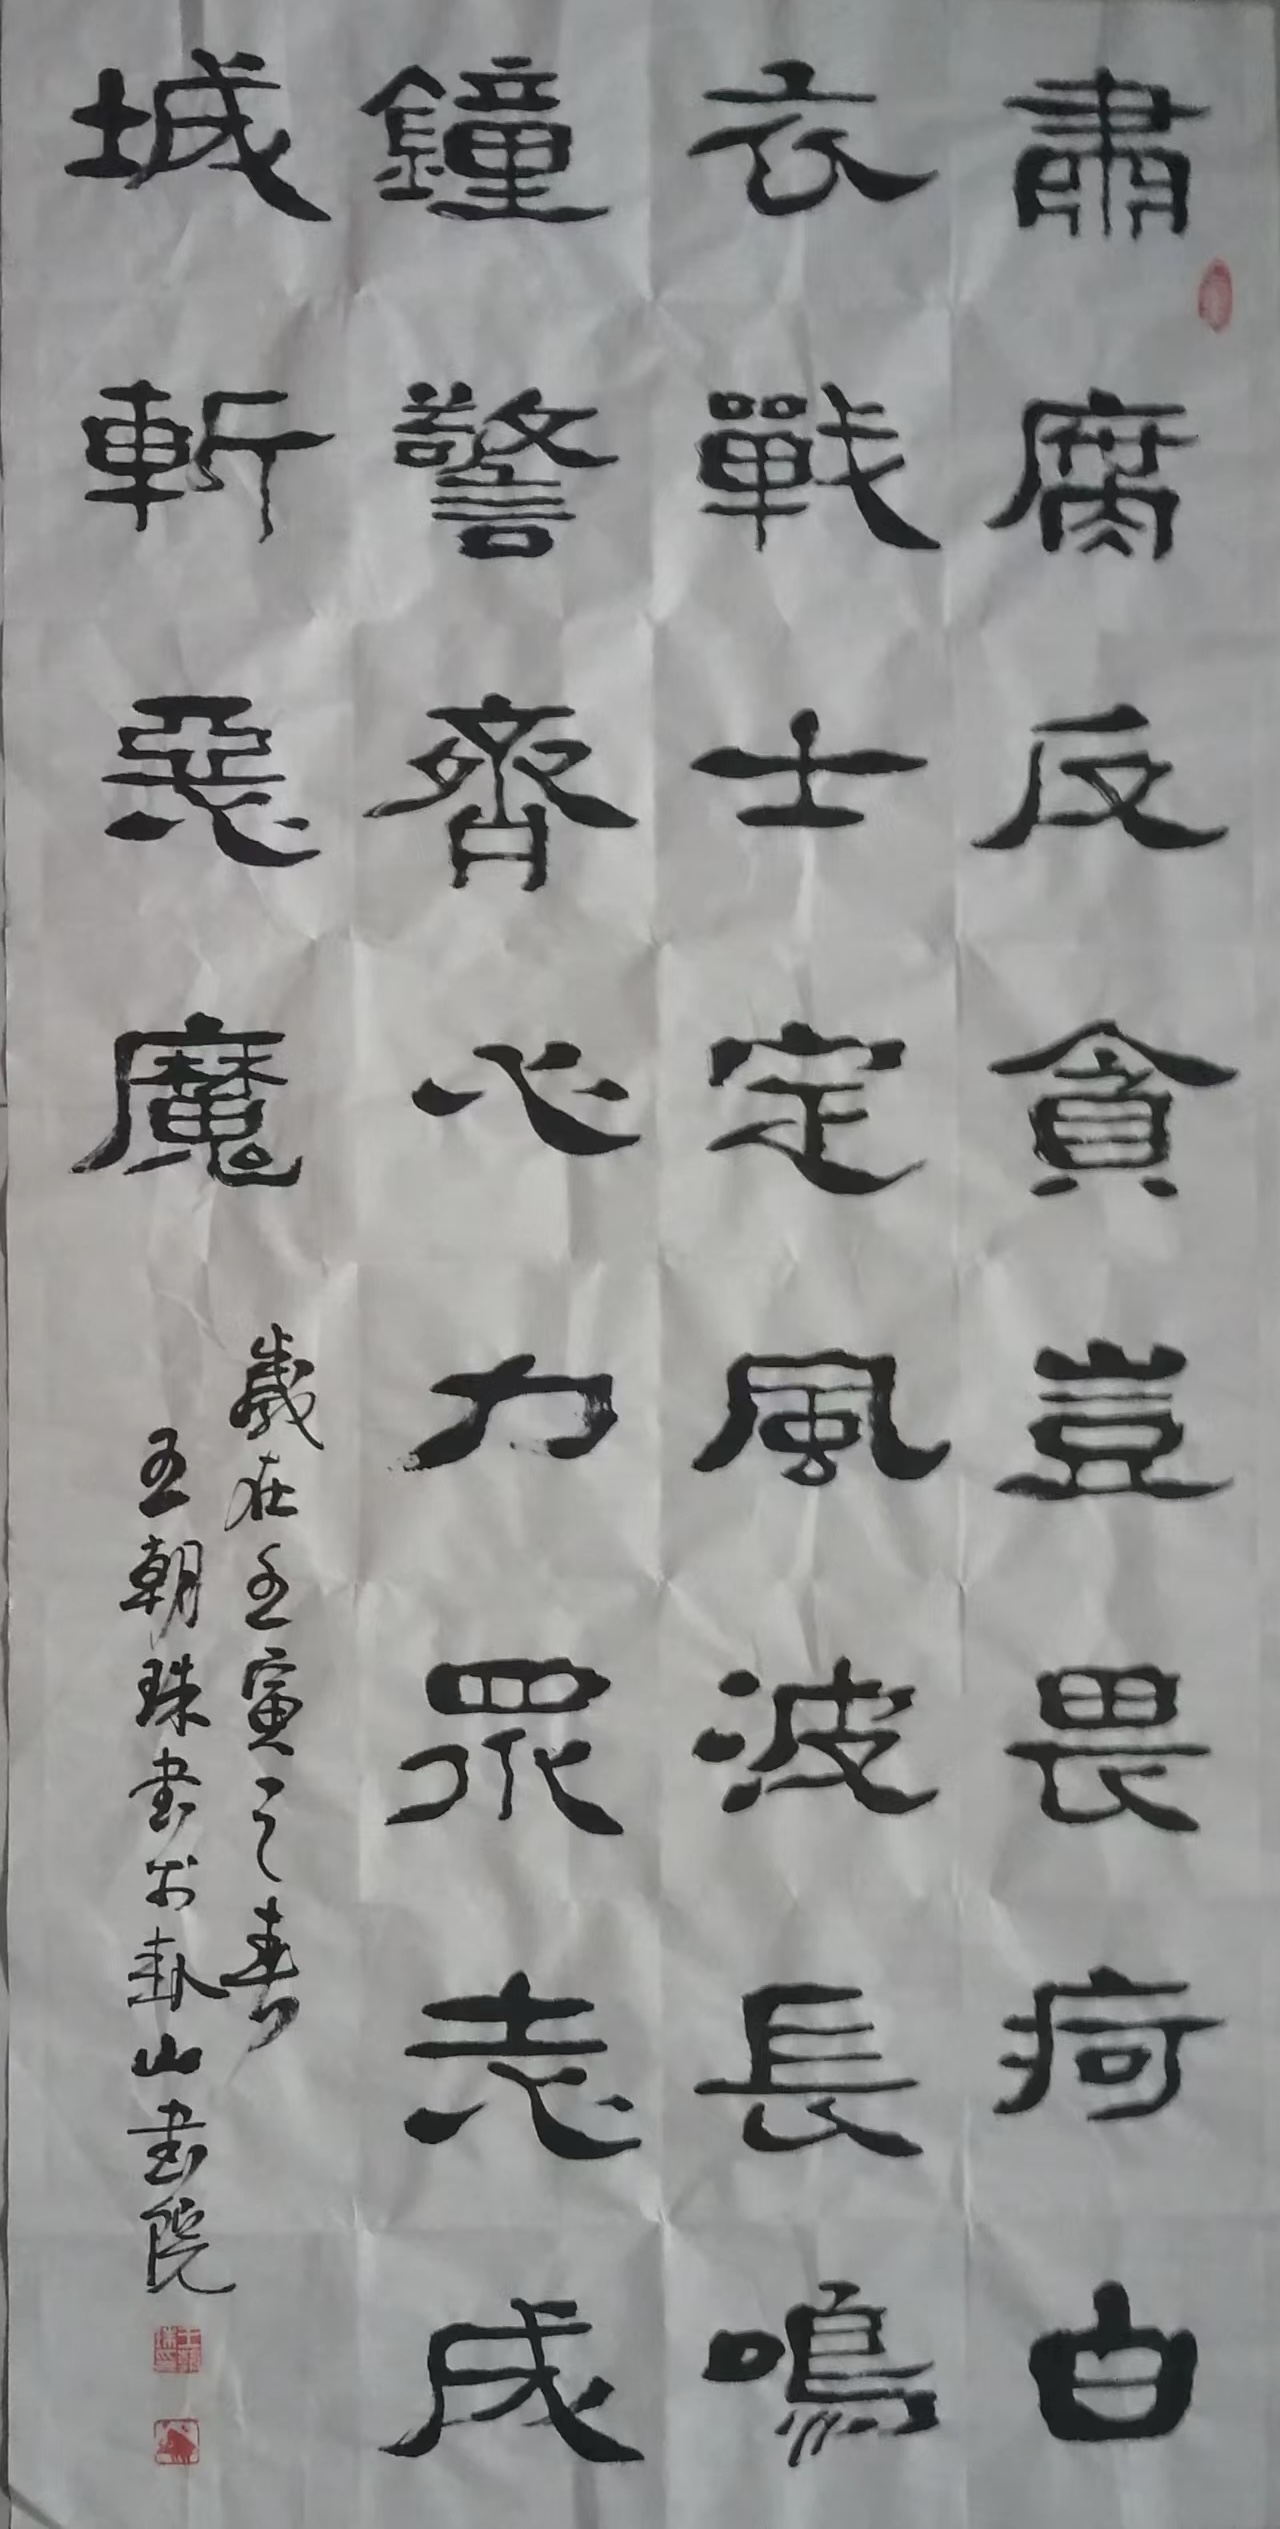 肅腐反貪豈畏疴白
衣戰士定風波長鳴
鐘警齊心力眾志成
城斬惡魔
歲在壬寅之春
王朝珠書於卦山書院